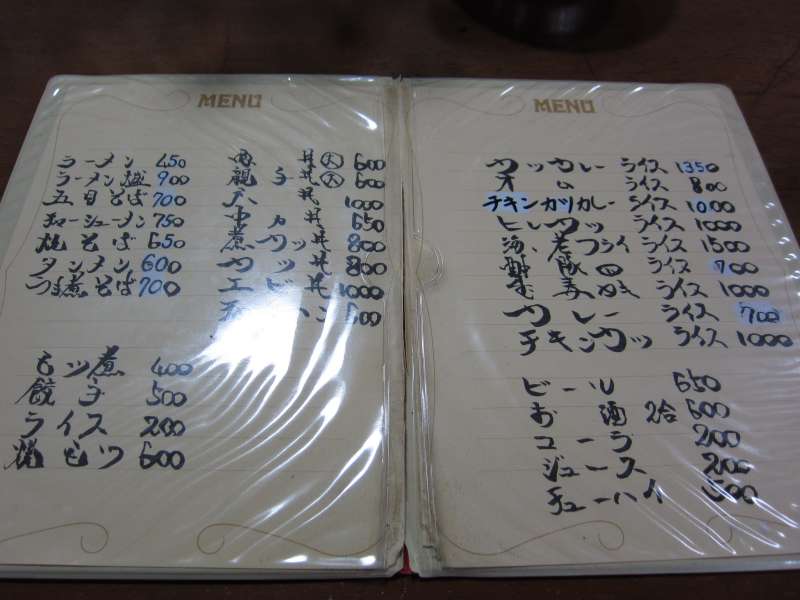 MENU
ラーメン 450
ラーメン 900
五目そば 700
チャーシューメン 750
焼そば 650
タンメン 600
つけ煮そば 700
モツ煮 400
餃子 500
ライス 200
焼モツ 600
丼 大 600
親子丼 大 600
天丼 1000
丼 650
煮カツ丼 800
カツ丼 800
エビ丼 1000
600
MENU
カツカレーライス 1350
オムライス 800
チキンカツカレーライス 1000
ヒレカツライス 1000
海老フライライス 1500
酢豚ライス 700
生姜焼ライス 1000
カレーライス 700
チキンカツライス 1000
ビール 650
お酒 2合 600
コーラ 200
ジュース 200
チューハイ 500